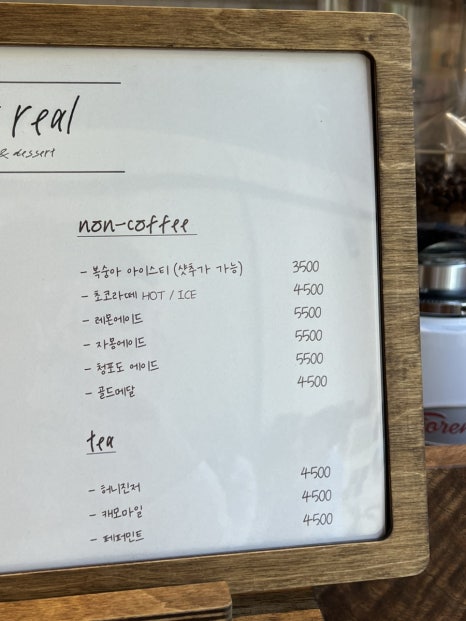 real
& dessert
non-coffee
- 복숭아 아이스티 (샷추가 가능) 3500
- 초코라떼 HOT / ICE 4500
- 레몬에이드 5500
- 자몽에이드 5500
- 청포도 에이드 5500
- 골드메달 4500
tea
- 허니진저 4500
- 캐모마일 4500
- 페퍼민트 4500